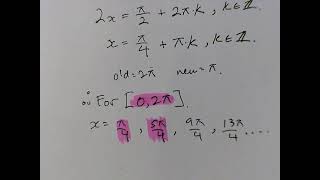 2x = π/2 + 2π·k , k∈ℤ.
x = π/4 + π·k , k∈ℤ.
old = 2π new = π.
∴ For [0,2π].
x = π/4 , 5π/4 , 9π/4 , 13π/4 ....